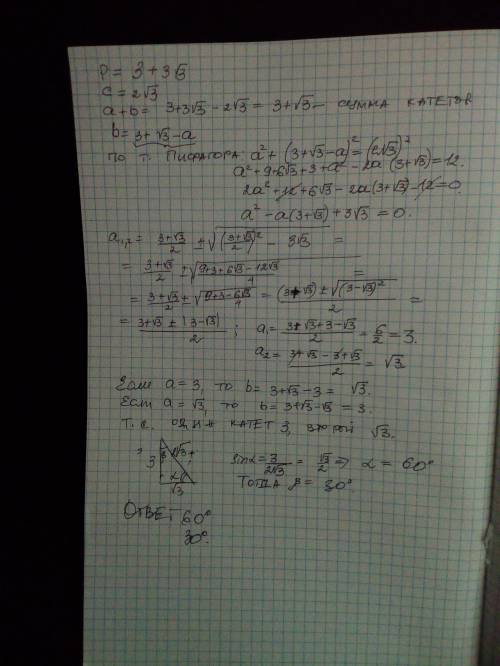 P = 3 + 3√3
c = 2√3
a + b = 3+3√3 - 2√3 = 3+√3 - сумма катетов
b = 3+√3 - a
по т. Пифагора: a² + (3+√3-a)² = (2√3)²
a² + 9 + 6√3 + 3 + a² - 2a(3+√3) = 12.
2a² + 12 + 6√3 - 2a(3+√3) - 12 = 0.
a² - a(3+√3) + 3√3 = 0.
a₁,₂ = (3+√3)/2 ± √(((3+√3)/2)² - 3√3) =
= (3+√3)/2 ± √((9+3+6√3-12√3)/4) =
= (3+√3)/2 ± √((9+3-6√3)/4) = ((3+√3) ± √((3-√3)²))/2 =
= (3+√3 ± |3-√3|)/2 ; a₁ = (3+√3+3-√3)/2 = 6/2 = 3.
a₂ = (3+√3-3+√3)/2 = √3.
Если a = 3, то b = 3+√3-3 = √3.
Если a = √3, то b = 3+√3-√3 = 3.
Т.е. один катет 3, второй √3.
3 β 2√3
α
√3
sinα = 3/(2√3) = √3/2 ⇒ α = 60°
Тогда β = 30°
Ответ 60°
30°.